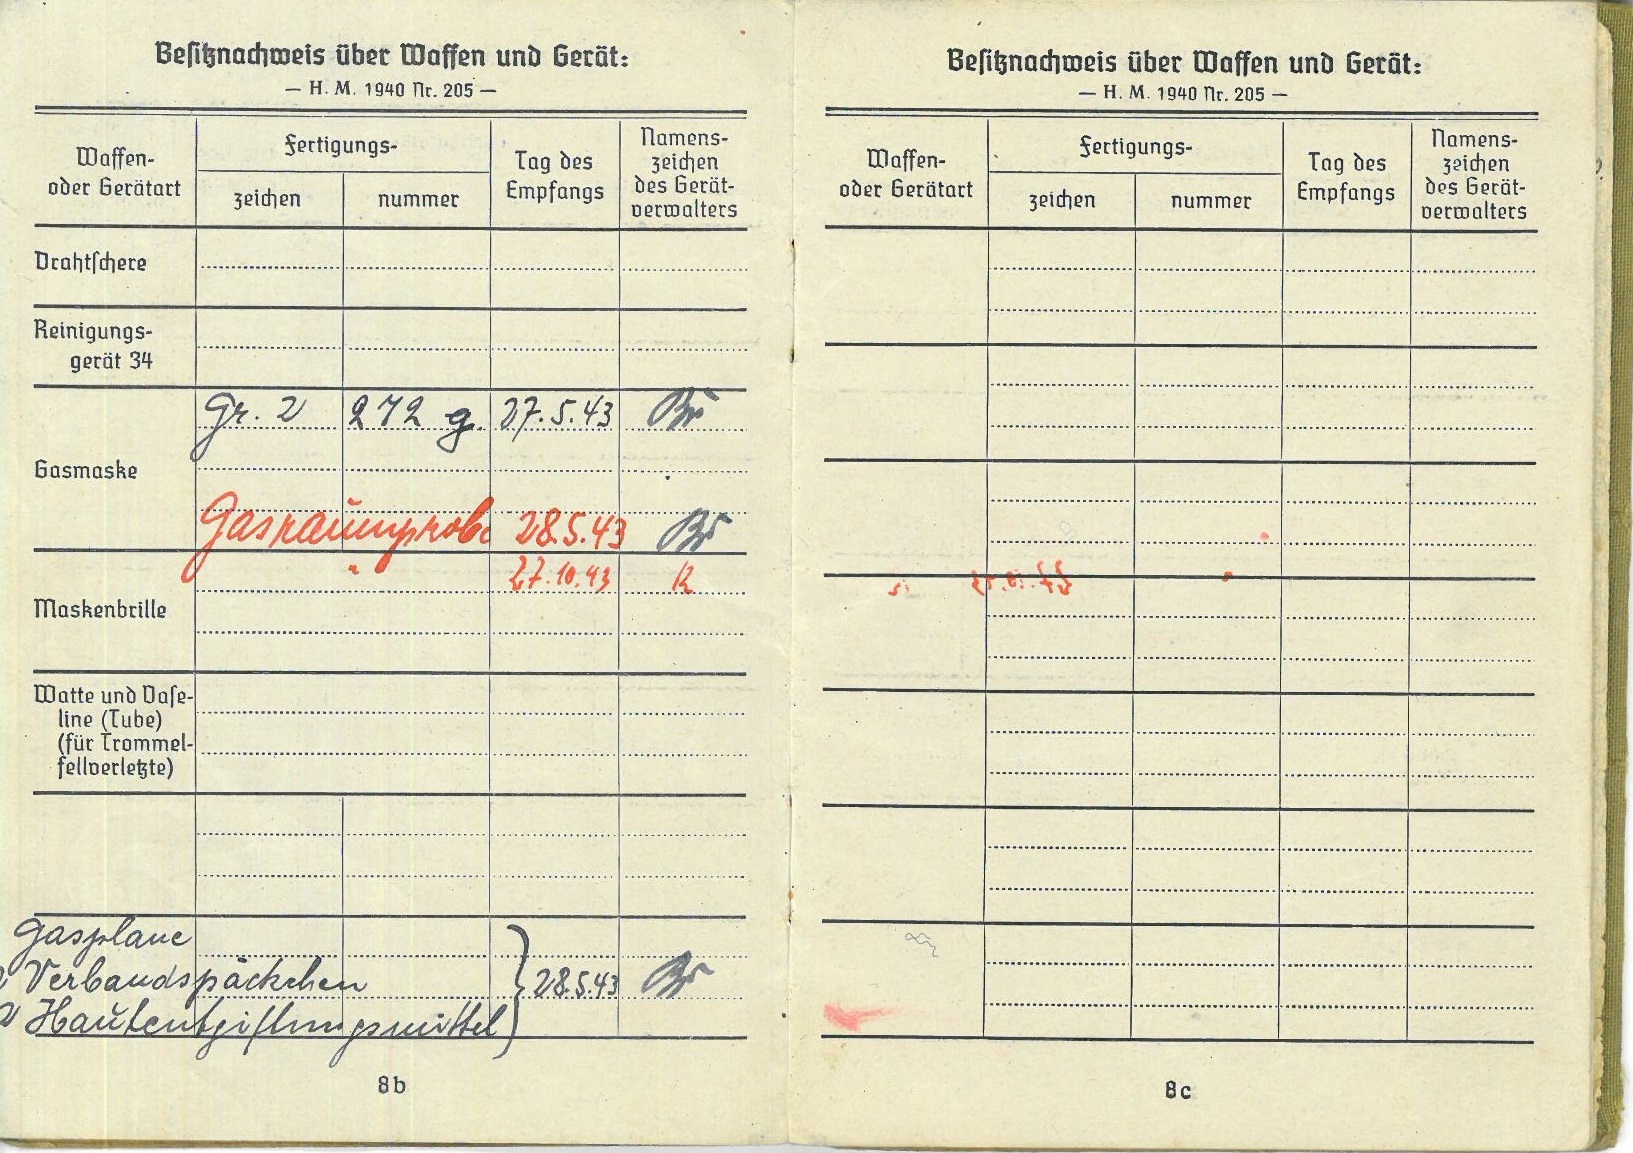 Besitznachweis über Waffen und Gerät:
— H. M. 1940 Nr. 205 —
Waffen-
oder Gerätart
Fertigungs-
zeichen
nummer
Tag des
Empfangs
Namens-
zeichen
des Gerät-
verwalters
Drahtschere
Reinigungs-
gerät 34
Gasmaske
Gr. 2 272 g. 27.5.43 Br
Gasraumprobe 28.5.43 Br
" 27.10.43 R
Maskenbrille
Watte und Vase-
line (Tube)
(für Trommel-
fellverletzte)
Gasplane
2 Verbandspäckchen 28.5.43 Br
2 Hautentgiftungsmittel
8b
Besitznachweis über Waffen und Gerät:
— H. M. 1940 Nr. 205 —
Waffen-
oder Gerätart
Fertigungs-
zeichen
nummer
Tag des
Empfangs
Namens-
zeichen
des Gerät-
verwalters
8c